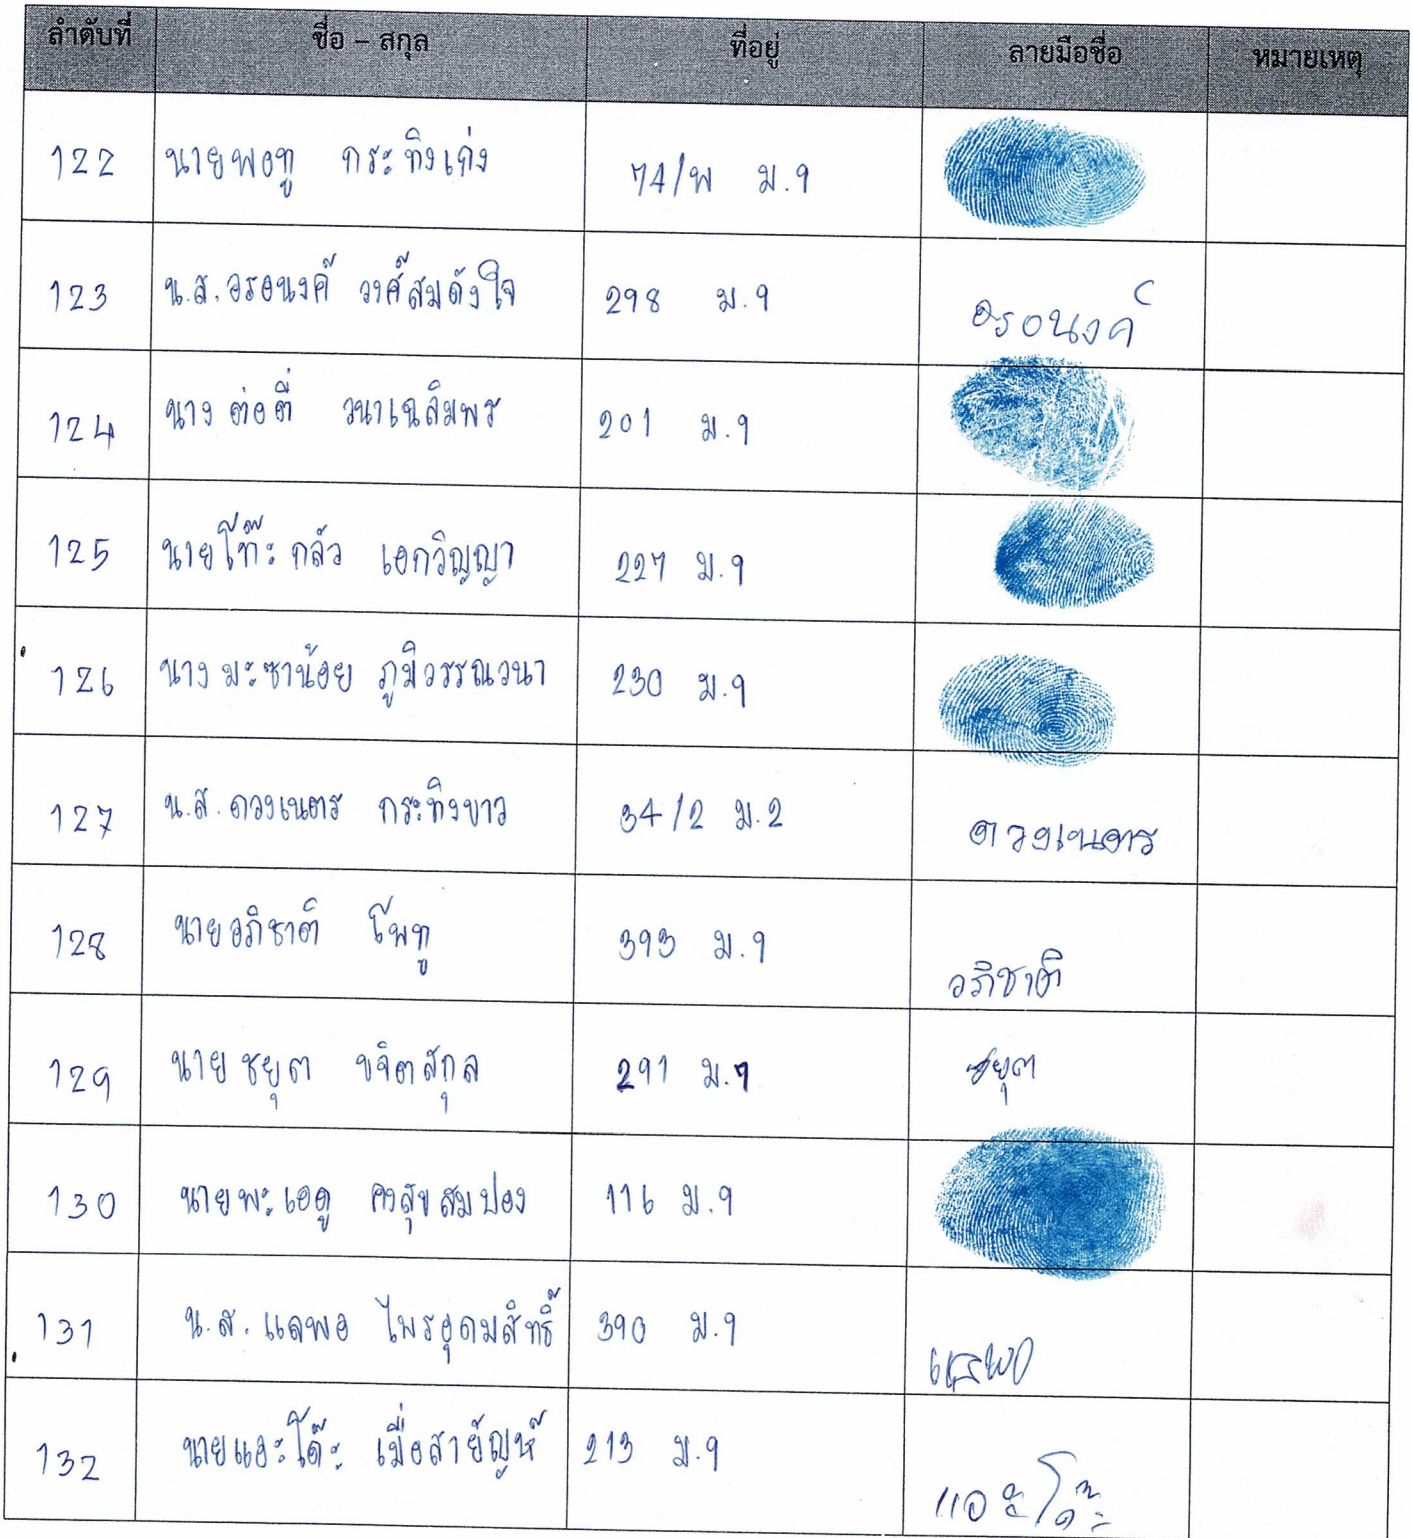 ลำดับที่ ชื่อ – สกุล ที่อยู่ ลายมือชื่อ หมายเหตุ
122 นายพอทู กระทิงเก่ง 74/พ ม.1
123 น.ส.อรอนงค์ วงศ์สมดังใจ 298 ม.1 อรอนงค์
124 นาง ต่อตี่ วนาเฉลิมพร 201 ม.1
125 นายโท๊ะกล้ว เอกวิญญา 227 ม.1
126 นาง มะซาน้อย ภูมิวรรณวนา 230 ม.1
127 น.ส.ดวงเนตร กระทิงขาว 34/2 ม.2 ดวงเนตร
128 นายอภิชาติ โพทู 393 ม.1 อภิชาติ
129 นาย ชยุต ขจิตสกุล 291 ม.1 ชยุต
130 นายพะเอดู คงสุขสมปอง 116 ม.1
131 น.ส. แลพอ ไพรอุดมสิทธิ์ 390 ม.1 แลพอ
132 นายแอะโด๊ะ เมื่อสายัญห์ 213 ม.1 แอะโด๊ะ